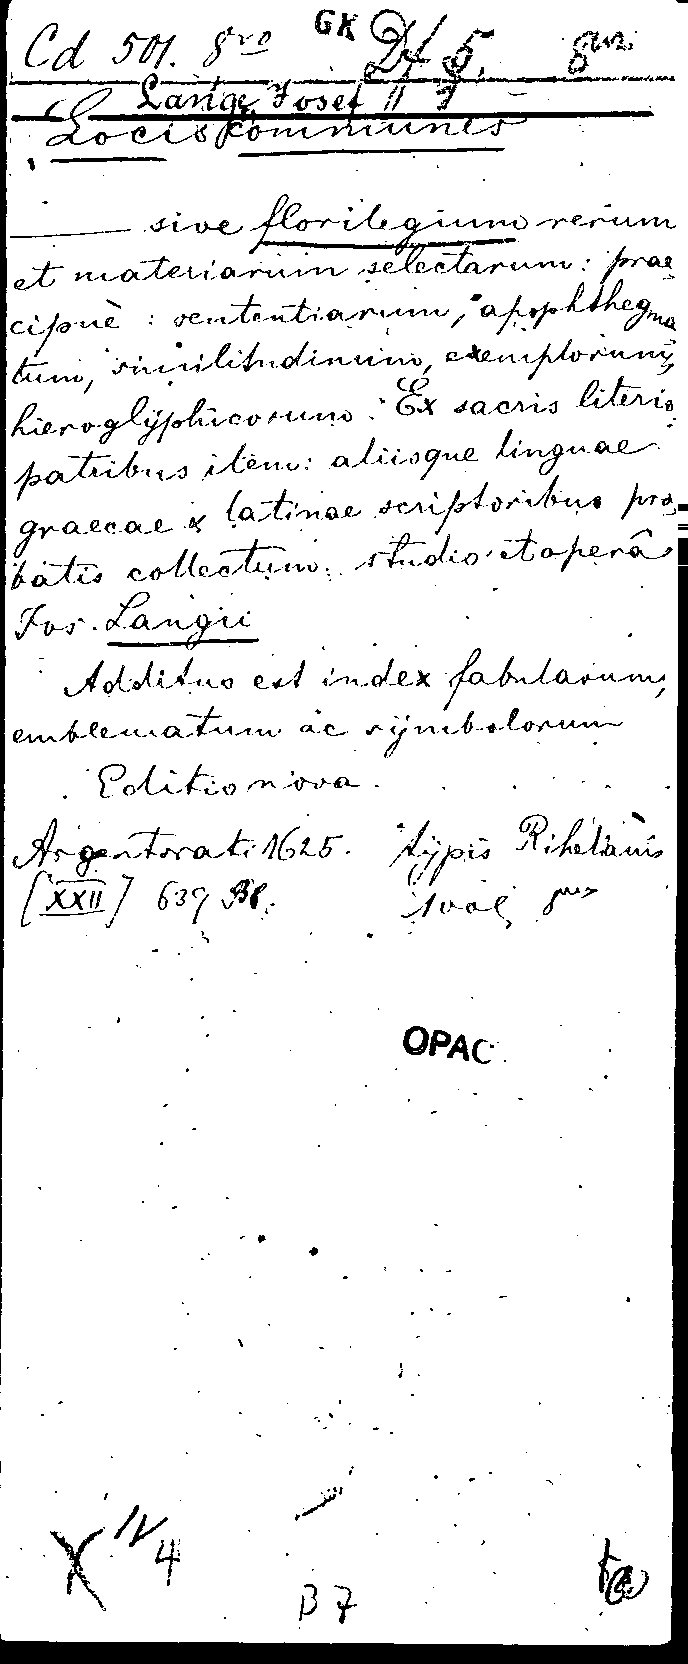 GK
Cd 501. 8vo Df 5. 8vo
Lange, Josef
Locis communes
——— sive florilegium rerum
et materiarum selectarum: prae-
cipuè: sententiarum, apophthegma
tum, similitudinum, exemplorum,
hieroglyphicorum. Ex sacris literis
patribus item: aliisque linguae
graecae & latinae scriptoribus pro-
batis collectum: studio et operâ
Jos. Langii
Additus est index fabularum,
emblematum ac symbolorum
Editio nova.
Argentorati 1625. typis Rihelianis
[XXII] 639 Bl. 8vo
OPAC
X IV 4
B7